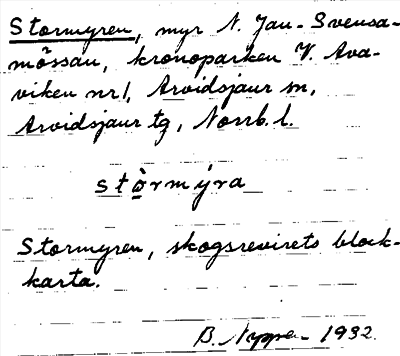 Stormyren, myr N. Jan-Svensa-
mössan, kronoparken V. Ava-
viken nr 1, Arvidsjaur sn,
Arvidsjaur tg, Norrb. l.
stò̱rmýra
Stormyren, skogsrevirets block-
karta.
B. Nyppen 1932.